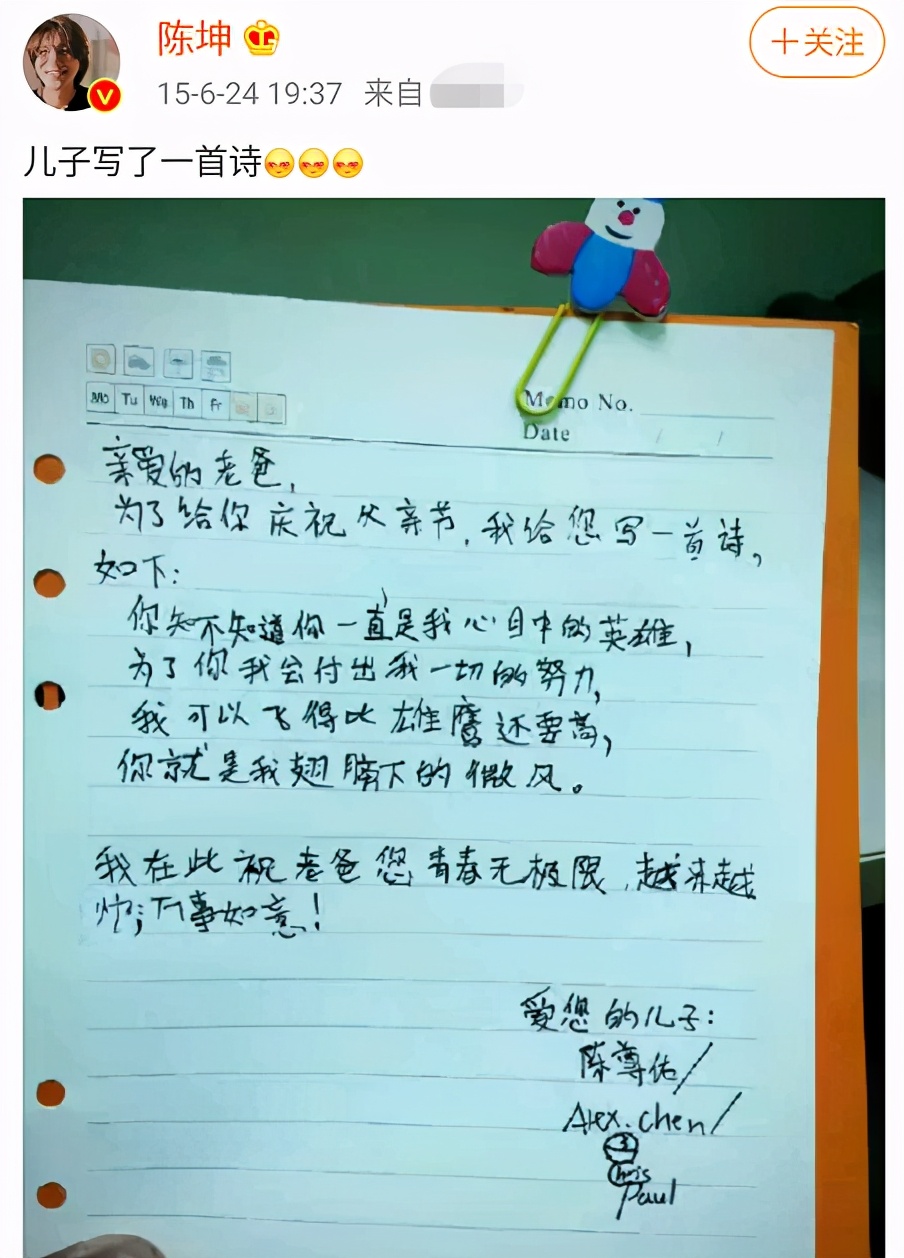 陈坤
+关注
15-6-24 19:37 来自
儿子写了一首诗
Mo Tu We Th Fr
Memo No.
Date / /
亲爱的老爸,
为了给你庆祝父亲节,我给您写一首诗,
如下:
你知不知道你一直是我心目中的英雄,
为了你我会付出我一切的努力,
我可以飞得比雄鹰还要高,
你就是我翅膀下的微风。
我在此祝老爸您青春无极限,越来越
帅;万事如意!
爱您的儿子:
陈尊佑/
Alex.chen/
3
Chris
Paul